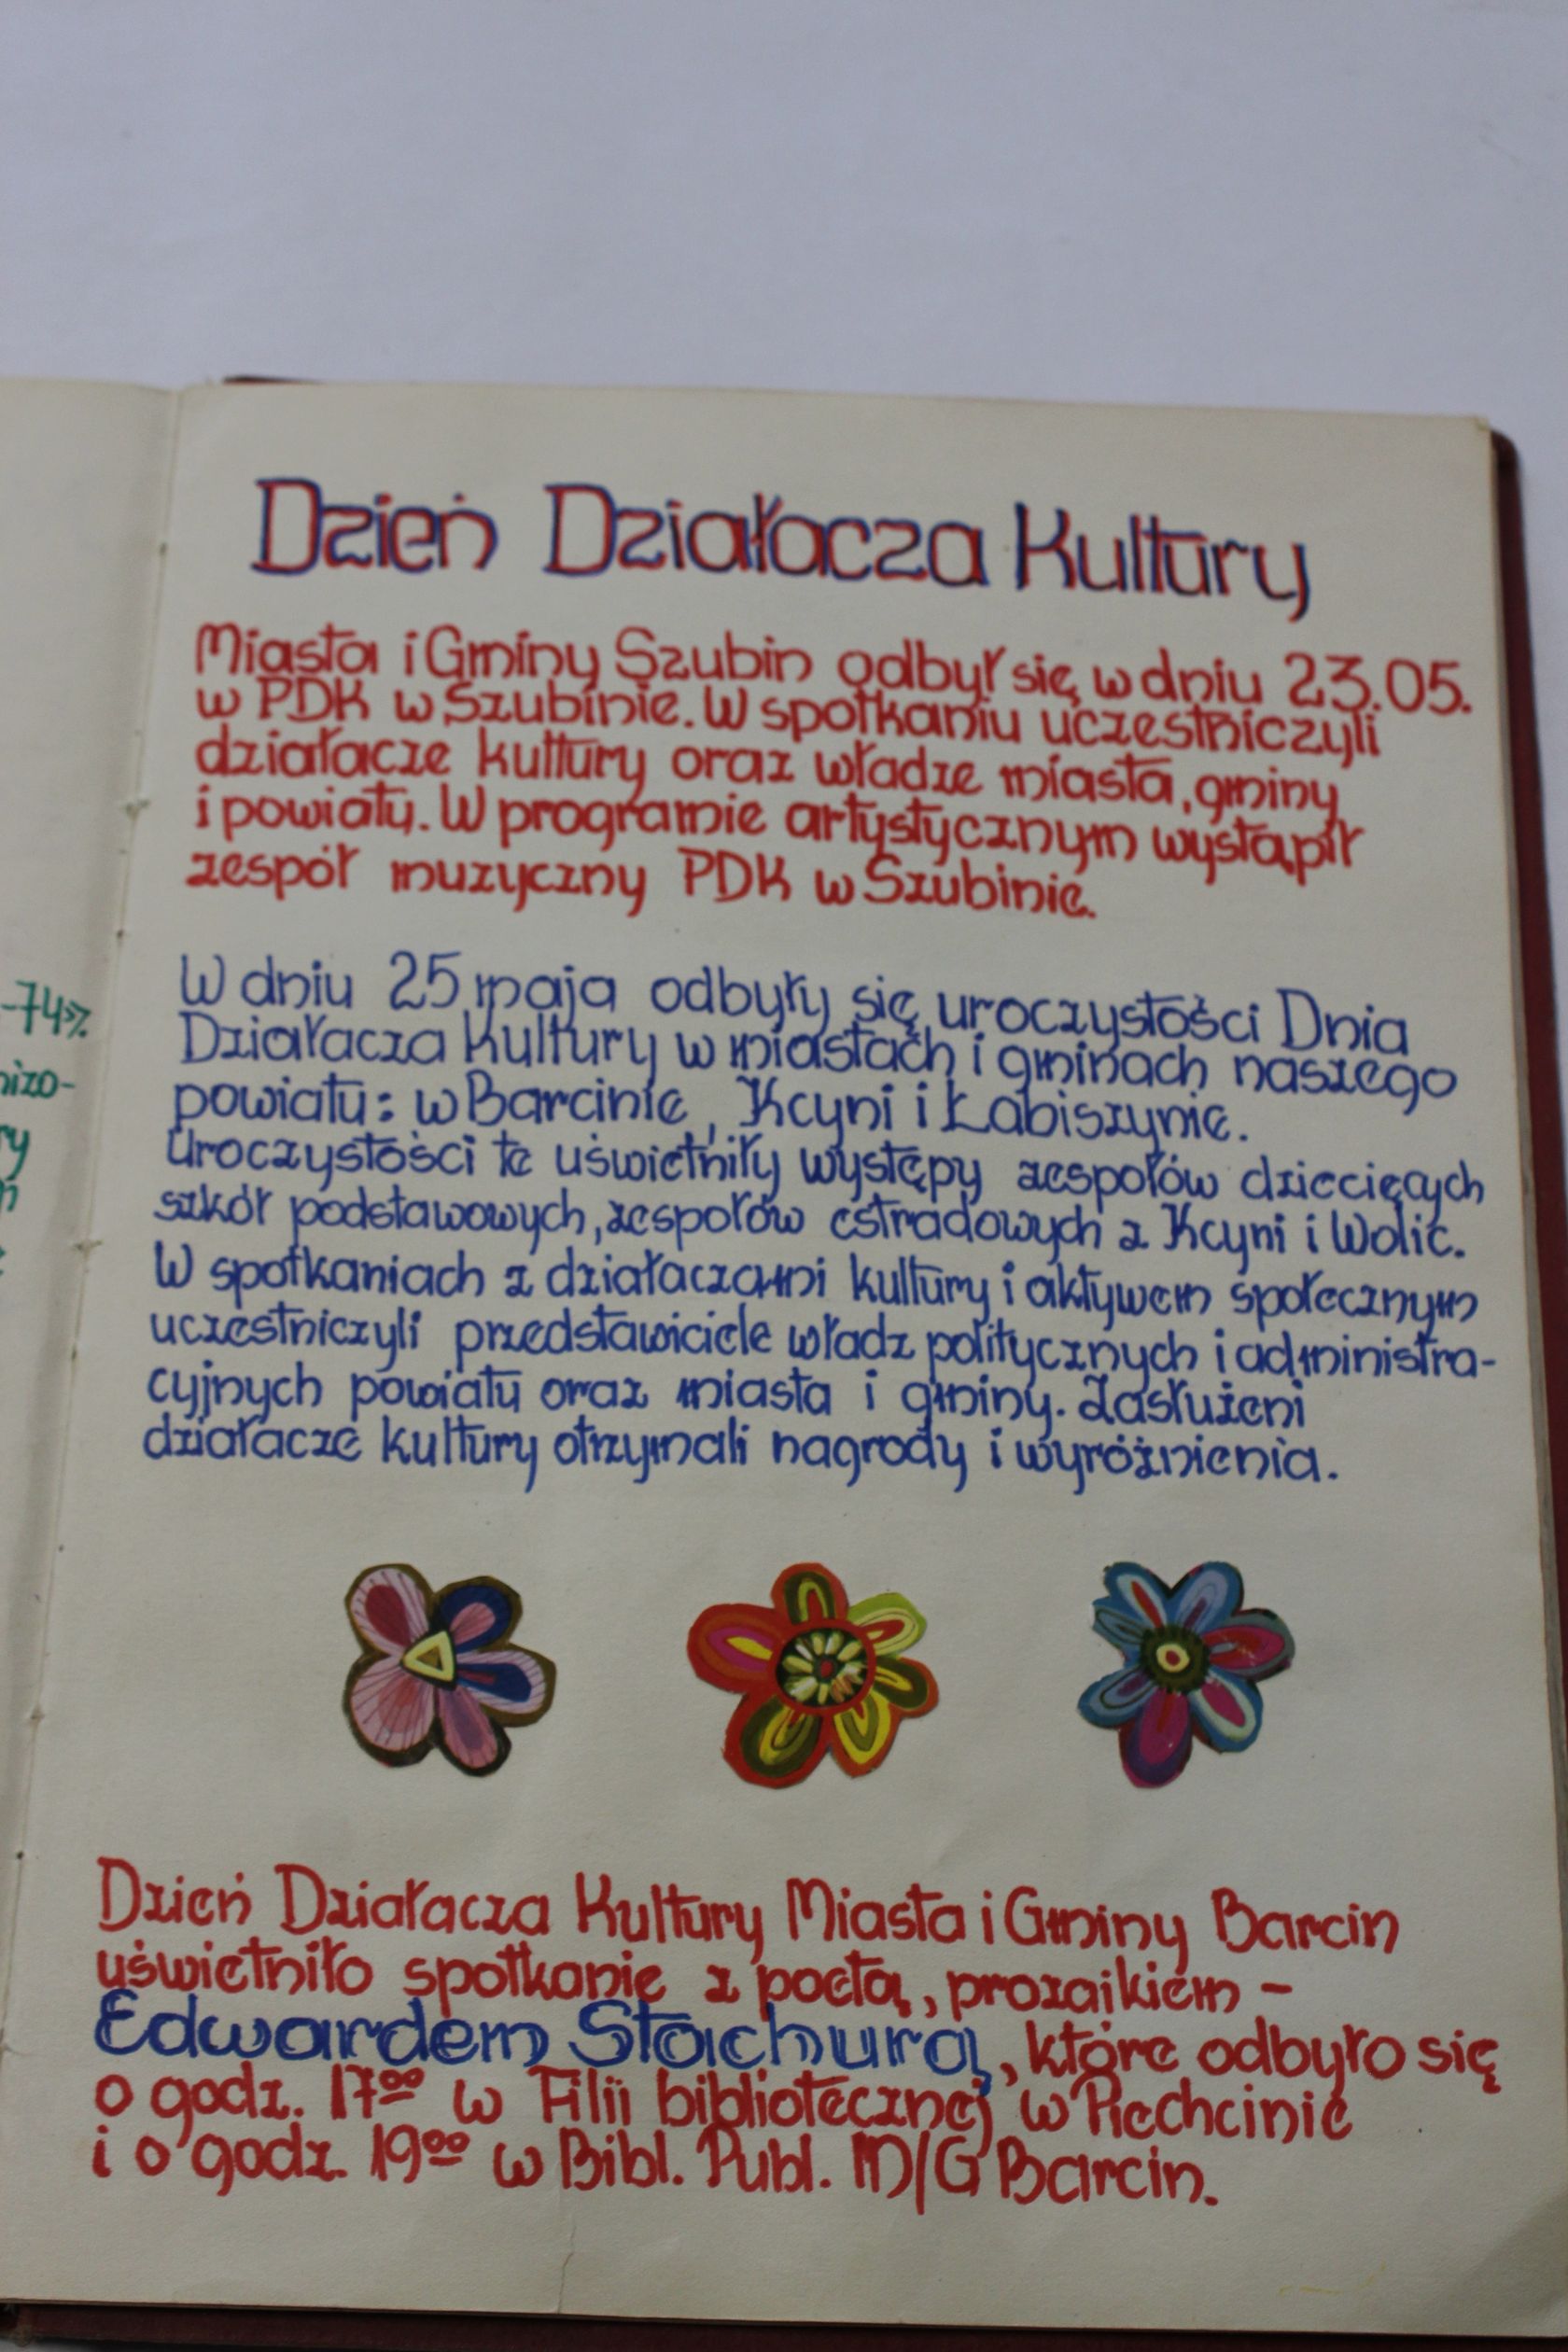 Dzień Działacza Kultury
Miasta i Gminy Szubin odbył się w dniu 23.05.
w PDK w Szubinie. W spotkaniu uczestniczyli
działacze kultury oraz władze miasta, gminy
i powiatu. W programie artystycznym wystąpił
zespół muzyczny PDK w Szubinie.
W dniu 25 maja odbyły się uroczystości Dnia
Działacza Kultury w miastach i gminach naszego
powiatu: w Barcinie, Kcyni i Łabiszynie.
Uroczystości te uświetniły występy zespołów dziecięcych
szkół podstawowych, zespołów estradowych z Kcyni i Wolic.
W spotkaniach z działaczami kultury i aktywem społecznym
uczestniczyli przedstawiciele władz politycznych i administra-
cyjnych powiatu oraz miasta i gminy. Zasłużeni
działacze kultury otrzymali nagrody i wyróżnienia.
Dzień Działacza Kultury Miasta i Gminy Barcin
uświetniło spotkanie z poetą, prozaikiem -
Edwardem Stachurą, które odbyło się
o godz. 17⁰⁰ w Filii bibliotecznej w Piechcinie
i o godz. 19⁰⁰ w Bibl. Publ. M/G Barcin.
-74».
nizo-
ry